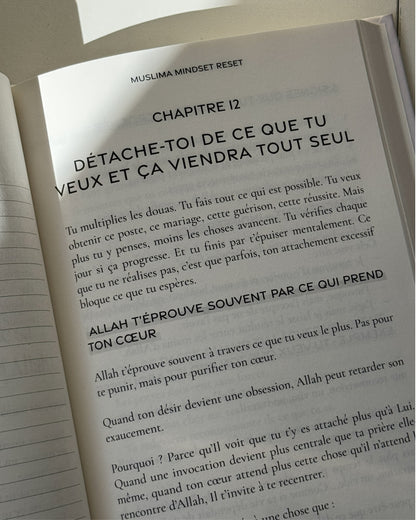 MUSLIMA MINDSET RESET
CHAPITRE 12
DÉTACHE-TOI DE CE QUE TU
VEUX ET ÇA VIENDRA TOUT SEUL
Tu multiplies les douas. Tu fais tout ce qui est possible. Tu veux
obtenir ce poste, ce mariage, cette guérison, cette réussite. Mais
plus tu y penses, moins les choses avancent. Tu vérifies chaque
jour si ça progresse. Et tu finis par t'épuiser mentalement. Ce
que tu ne réalises pas, c'est que parfois, ton attachement excessif
bloque ce que tu espères.
ALLAH T'ÉPROUVE SOUVENT PAR CE QUI PREND
TON CŒUR
Allah t'éprouve souvent à travers ce que tu veux le plus. Pas pour
te punir, mais pour purifier ton cœur.
Quand ton désir devient une obsession, Allah peut retarder son
exaucement.
Pourquoi ? Parce qu'Il voit que tu t'y es attaché plus qu'à Lui.
Quand une invocation devient plus centrale que ta prière elle
même, quand ton cœur attend plus cette chose qu'il n'attend l
rencontre d'Allah, Il t'invite à te recentrer.
à une chose que :